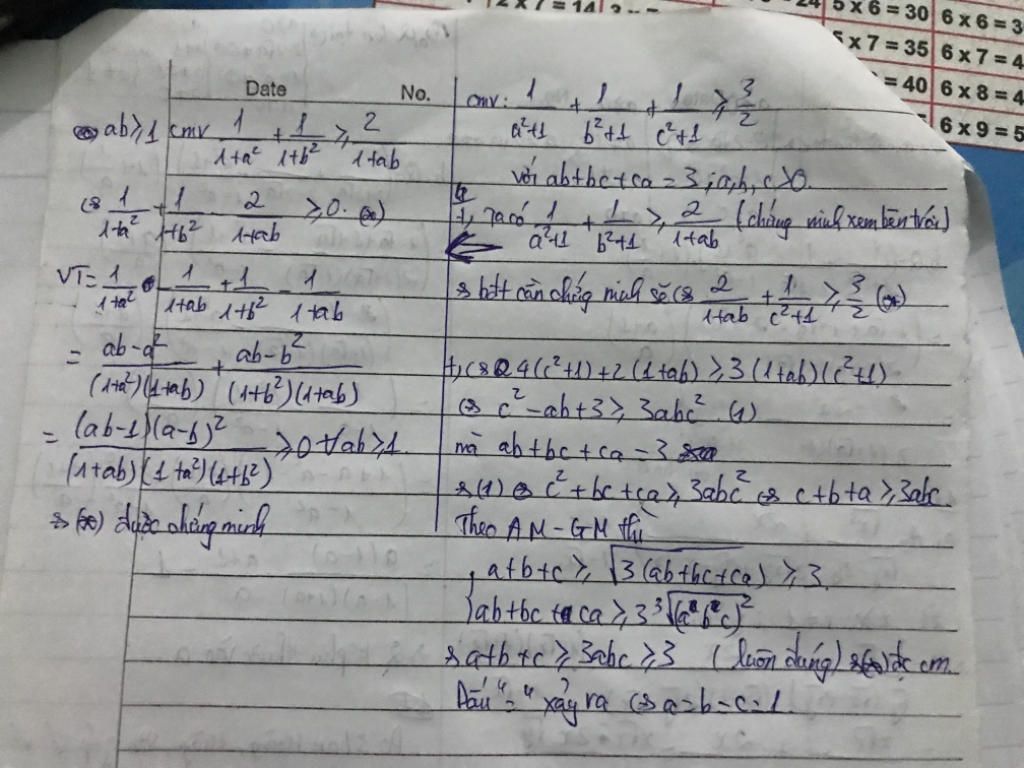 2 x 7 = 14
5 x 6 = 30 6 x 6 = 3
5 x 7 = 35 6 x 7 = 4
= 40 6 x 8 = 4
6 x 9 = 5
Date No.
ab ≥ 1 cmv 1/(1+a²) + 1/(1+b²) ≥ 2/(1+ab)
⇔ 1/(1+a²) + 1/(1+b²) - 2/(1+ab) ≥ 0. (*)
VT = 1/(1+a²) - 1/(1+ab) + 1/(1+b²) - 1/(1+ab)
= (ab-a²)/((1+a²)(1+ab)) + (ab-b²)/((1+b²)(1+ab))
= (ab-1)(a-b)²/((1+ab)(1+a²)(1+b²)) ≥ 0 ∀ab ≥ 1.
⇒ (*) được chứng minh
cmv: 1/(a²+1) + 1/(b²+1) + 1/(c²+1) ≥ 3/2
với ab+bc+ca = 3; a,b,c > 0.
+, Ta có 1/(a²+1) + 1/(b²+1) ≥ 2/(1+ab) (chứng minh xem bên trái)
⇒ bđt cần chứng minh sẽ ⇔ 2/(1+ab) + 1/(c²+1) ≥ 3/2 (*)
+, ⇔ 4(c²+1) + 2(1+ab) ≥ 3(1+ab)(c²+1)
⇔ c² - ab + 3 ≥ 3abc² (1)
mà ab+bc+ca = 3
⇒ (1) ⇔ c² + bc + ca ≥ 3abc² ⇔ c+b+a ≥ 3abc.
Theo AM-GM thì
a+b+c ≥ √(3(ab+bc+ca)) ≥ 3
ab+bc+ca ≥ 3∛(abc)²
⇒ a+b+c ≥ 3abc ≥ 3 (luôn đúng) ⇒ (*) đc cm.
Dấu "=" xảy ra ⇔ a=b=c=1.